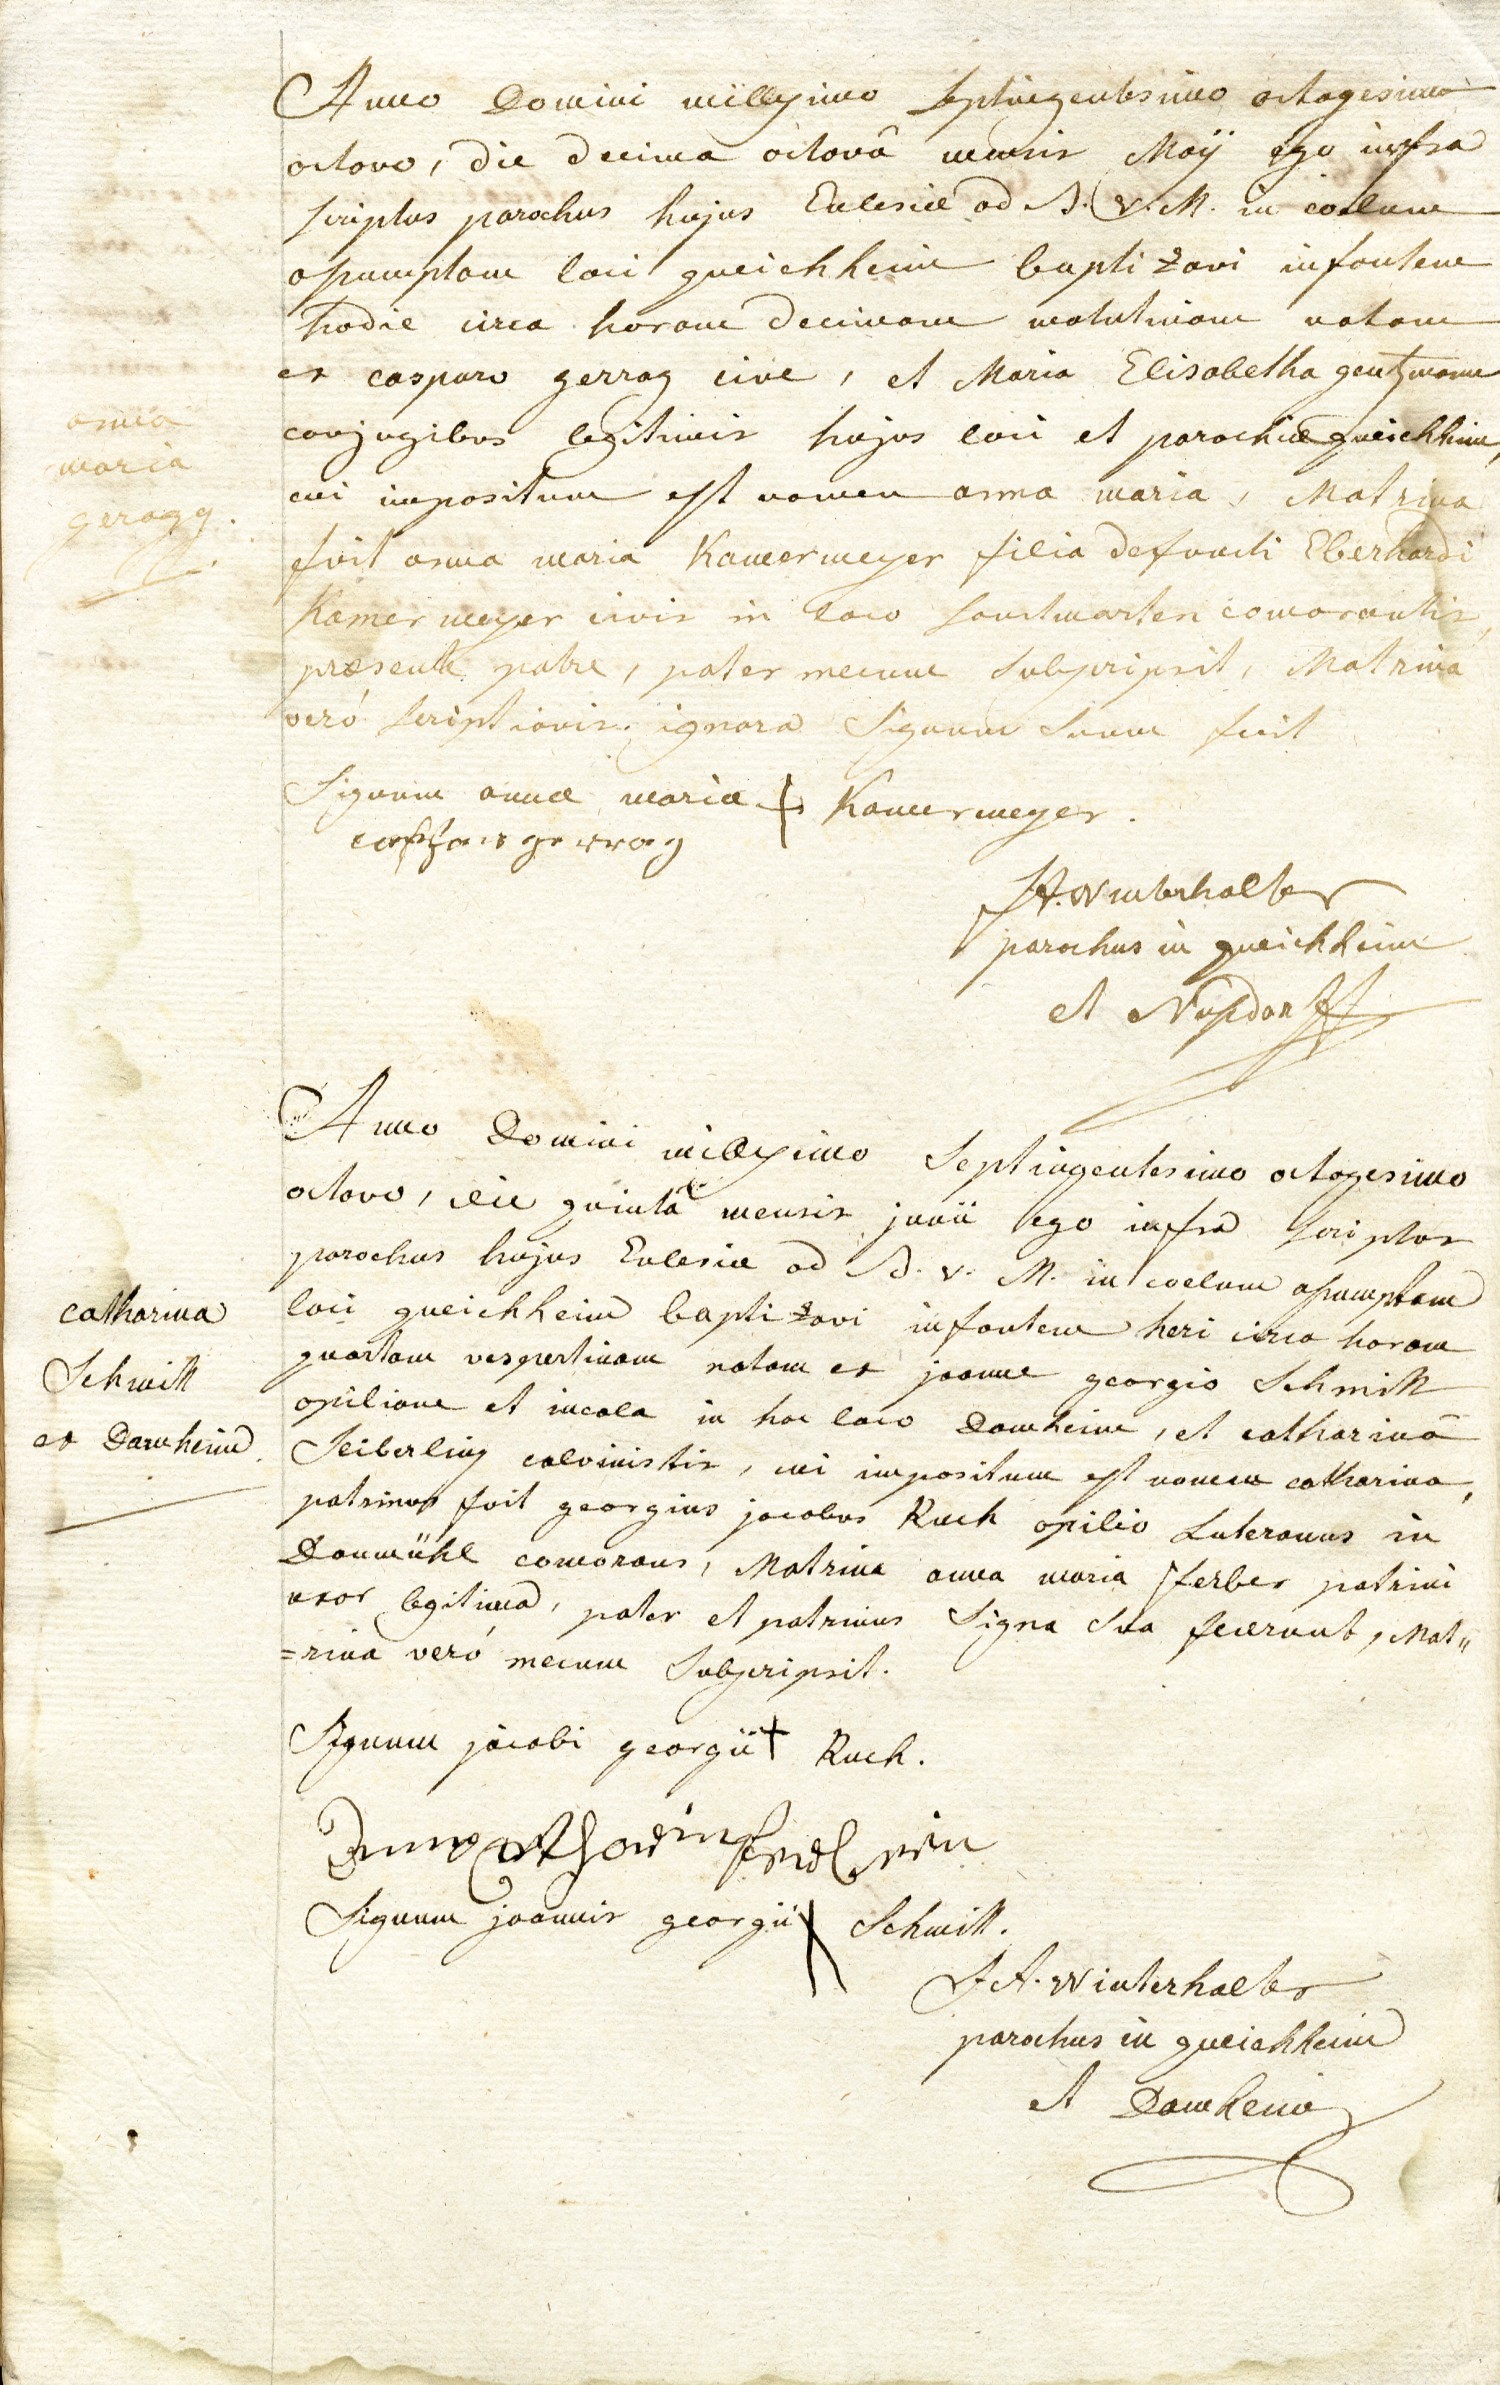 Anno Domini millesimo septingentesimo octogesimo
octavo, die decima octavâ mensis Maÿ ego infra
scriptus parochus hujus Eclesiæ ad B. V. M. in coelum
assumptam loci queichheim baptizavi infantem
hodie circa horam decimam matutinam natam
ex casparo gerrag cive, et Maria Elisabetha gentzmann
conjugibus legitimis hujus loci et parochiæ queichheim,
cui impositum est nomen anna maria, Matrina
fuit anna maria Kamermeyer filia defuncti Eberhardi
Kamermeyer civis in loco comorantis,
præsente patre, pater mecum subscripsit, Matrina
veró scriptionis ignara signum suum fecit
anna
maria
geragg.
Signum annæ mariæ + Kamermeyer.
gerrag
J A. Winterhalter
parochus in queichheim
et Nussdorf
Anno Domini millesimo septingentesimo octogesimo
octavo, die quintâ mensis junii ego infra scriptus
parochus hujus Eclesiæ ad B. V. M. in coelum assumptam
loci queichheim baptizavi infantem heri circa horam
quartam vespertinam natam ex joanne georgio Schmitt
opilione et incola in hoc loco Damheim, et catharinâ
Seiberling calvinistis, cui impositum est nomen catharina,
patrinus fuit georgius jacobus Ruch opilio Luteranus in
Danmühl comorans, Matrina anna maria ferber patrini
uxor legitima, pater et patrinus signa sua fecerunt, Mat=
=rina veró mecum subscripsit.
catharina
Schmitt
ex Damheim.
Signum jacobi georgii + Ruch.
Signum joannis georgii X Schmitt.
J A. Winterhalter
parochus in queichheim
et Damheim